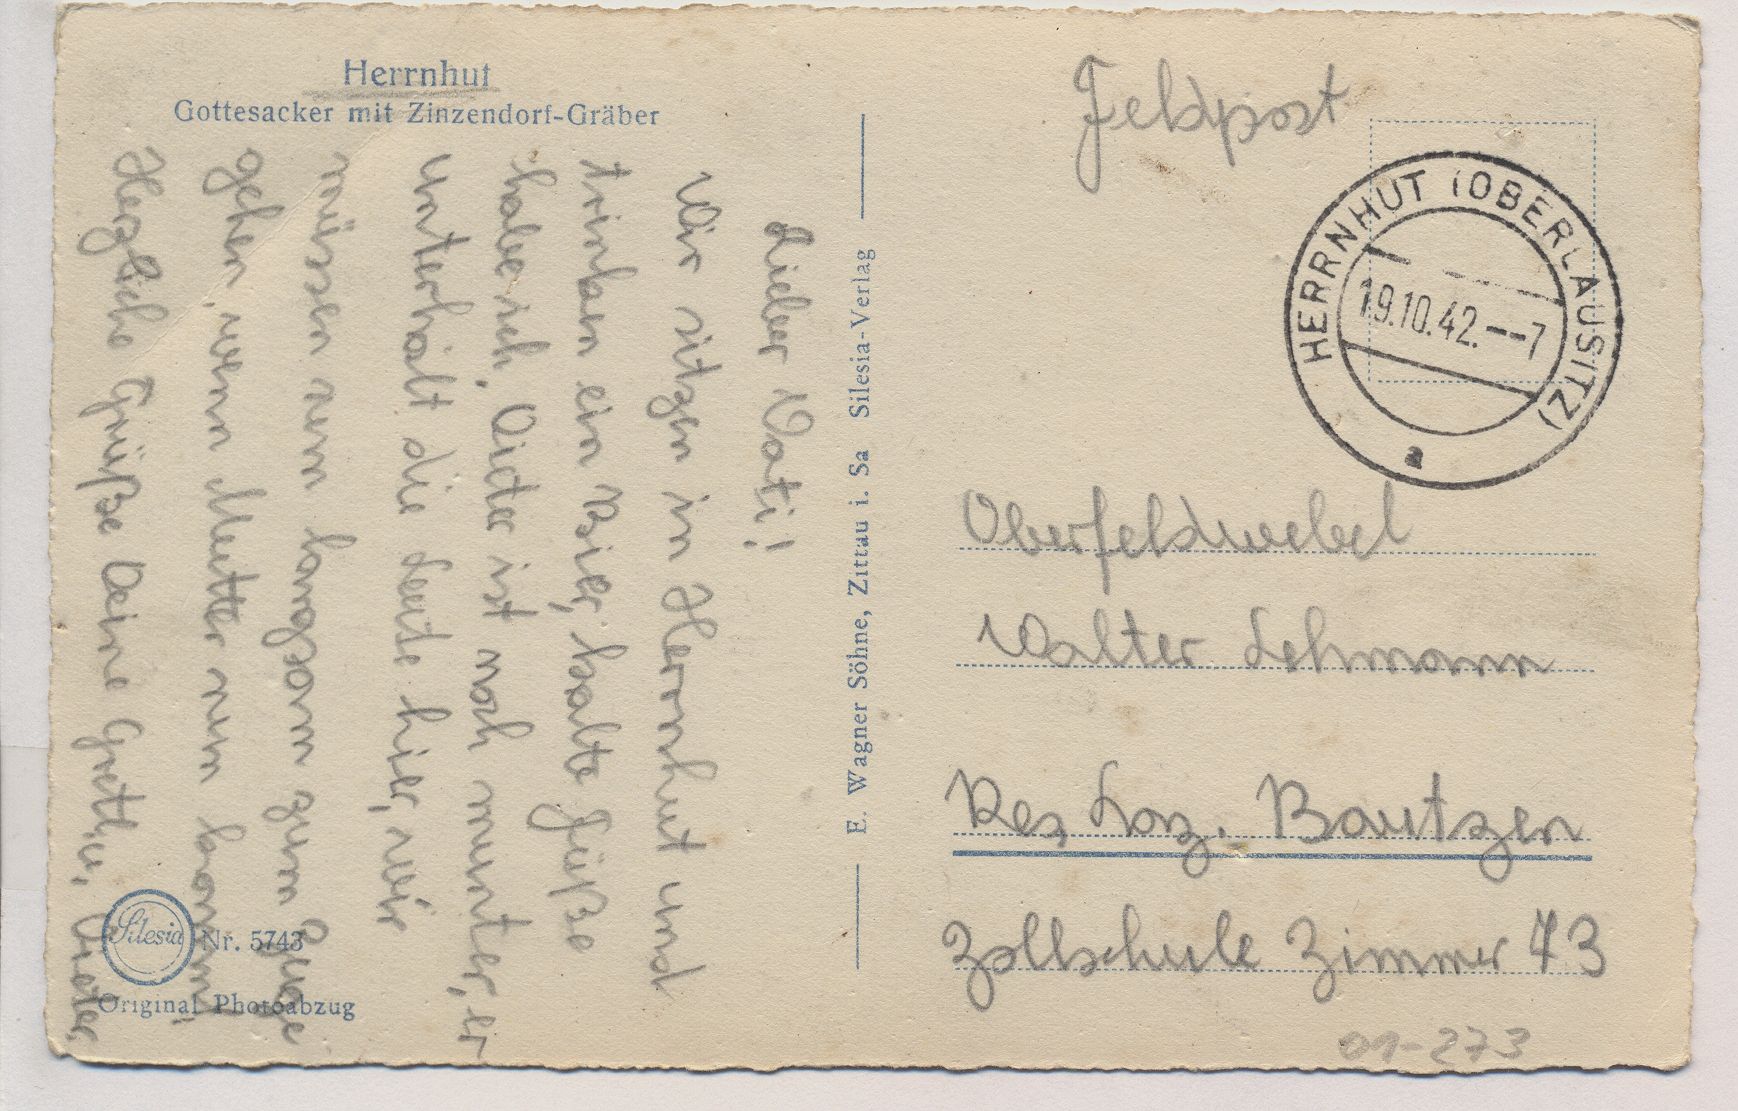 Herrnhut
Gottesacker mit Zinzendorf-Gräber
Lieber Vati!
Wir sitzen in Herrnhut und
trinken ein Bier, kalte Füße
habe ich. Dieter ist noch munter, er
unterhält die Leute hier, wir
müssen nun langsam zum Zuge
gehen, wenn Mutter nun kommt,
Herzliche Grüße Deine Gretel u. Dieter
Silesia
Nr. 5743
Original Photoabzug
E. Wagner Söhne, Zittau i. Sa Silesia-Verlag
Feldpost
HERRNHUT (OBERLAUSITZ)
19.10.42.--7
a
Oberfeldwebel
Walter Lehmann
Res Laz. Bautzen
Zollschule Zimmer 73
01-273